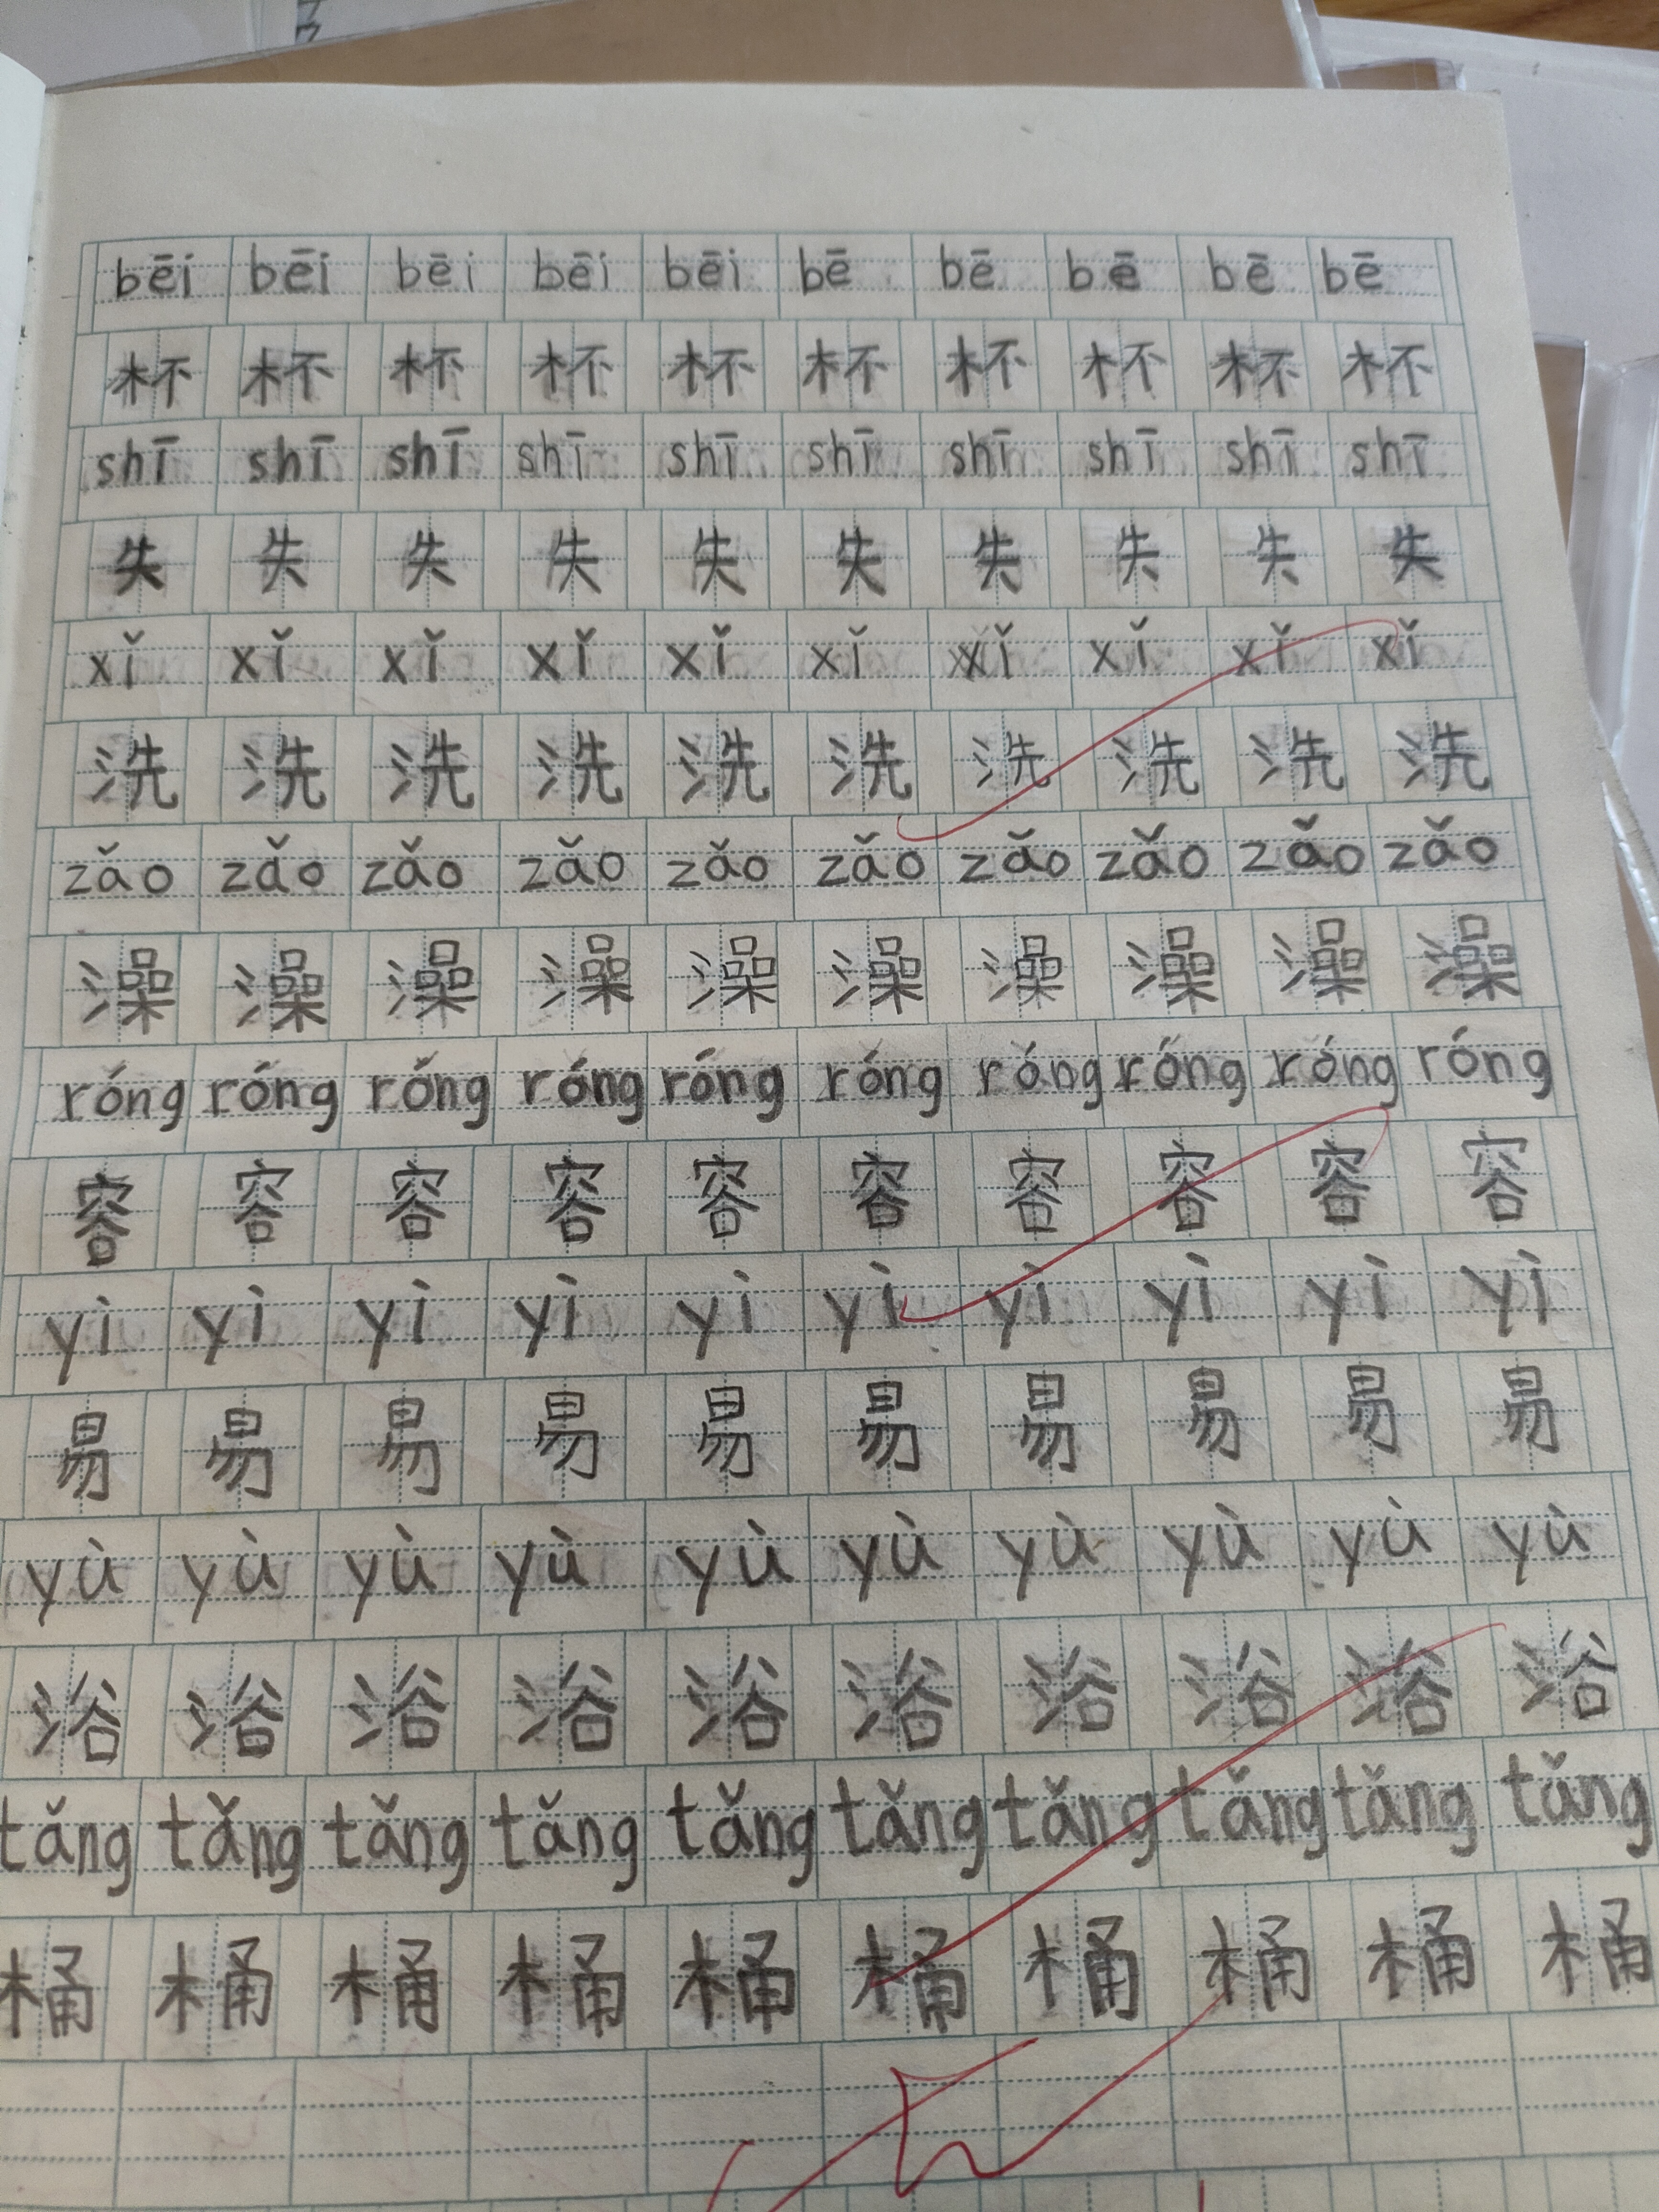 bēi bēi bēi bēi bēi bē bē bē bē bē
杯 杯 杯 杯 杯 杯 杯 杯 杯 杯
shī shī shī shī shī shī shī shī shī shī
失 失 失 失 失 失 失 失 失 失
xǐ xǐ xǐ xǐ xǐ xǐ xǐ xǐ xǐ xǐ
洗 洗 洗 洗 洗 洗 洗 洗 洗 洗
zǎo zǎo zǎo zǎo zǎo zǎo zǎo zǎo zǎo zǎo
澡 澡 澡 澡 澡 澡 澡 澡 澡 澡
róng róng róng róng róng róng róng róng róng róng
容 容 容 容 容 容 容 容 容 容
yì yì yì yì yì yì yì yì yì yì
易 易 易 易 易 易 易 易 易 易
yù yù yù yù yù yù yù yù yù yù
浴 浴 浴 浴 浴 浴 浴 浴 浴 浴
tǎng tǎng tǎng tǎng tǎng tǎng tǎng tǎng tǎng tǎng
桶 桶 桶 桶 桶 桶 桶 桶 桶 桶